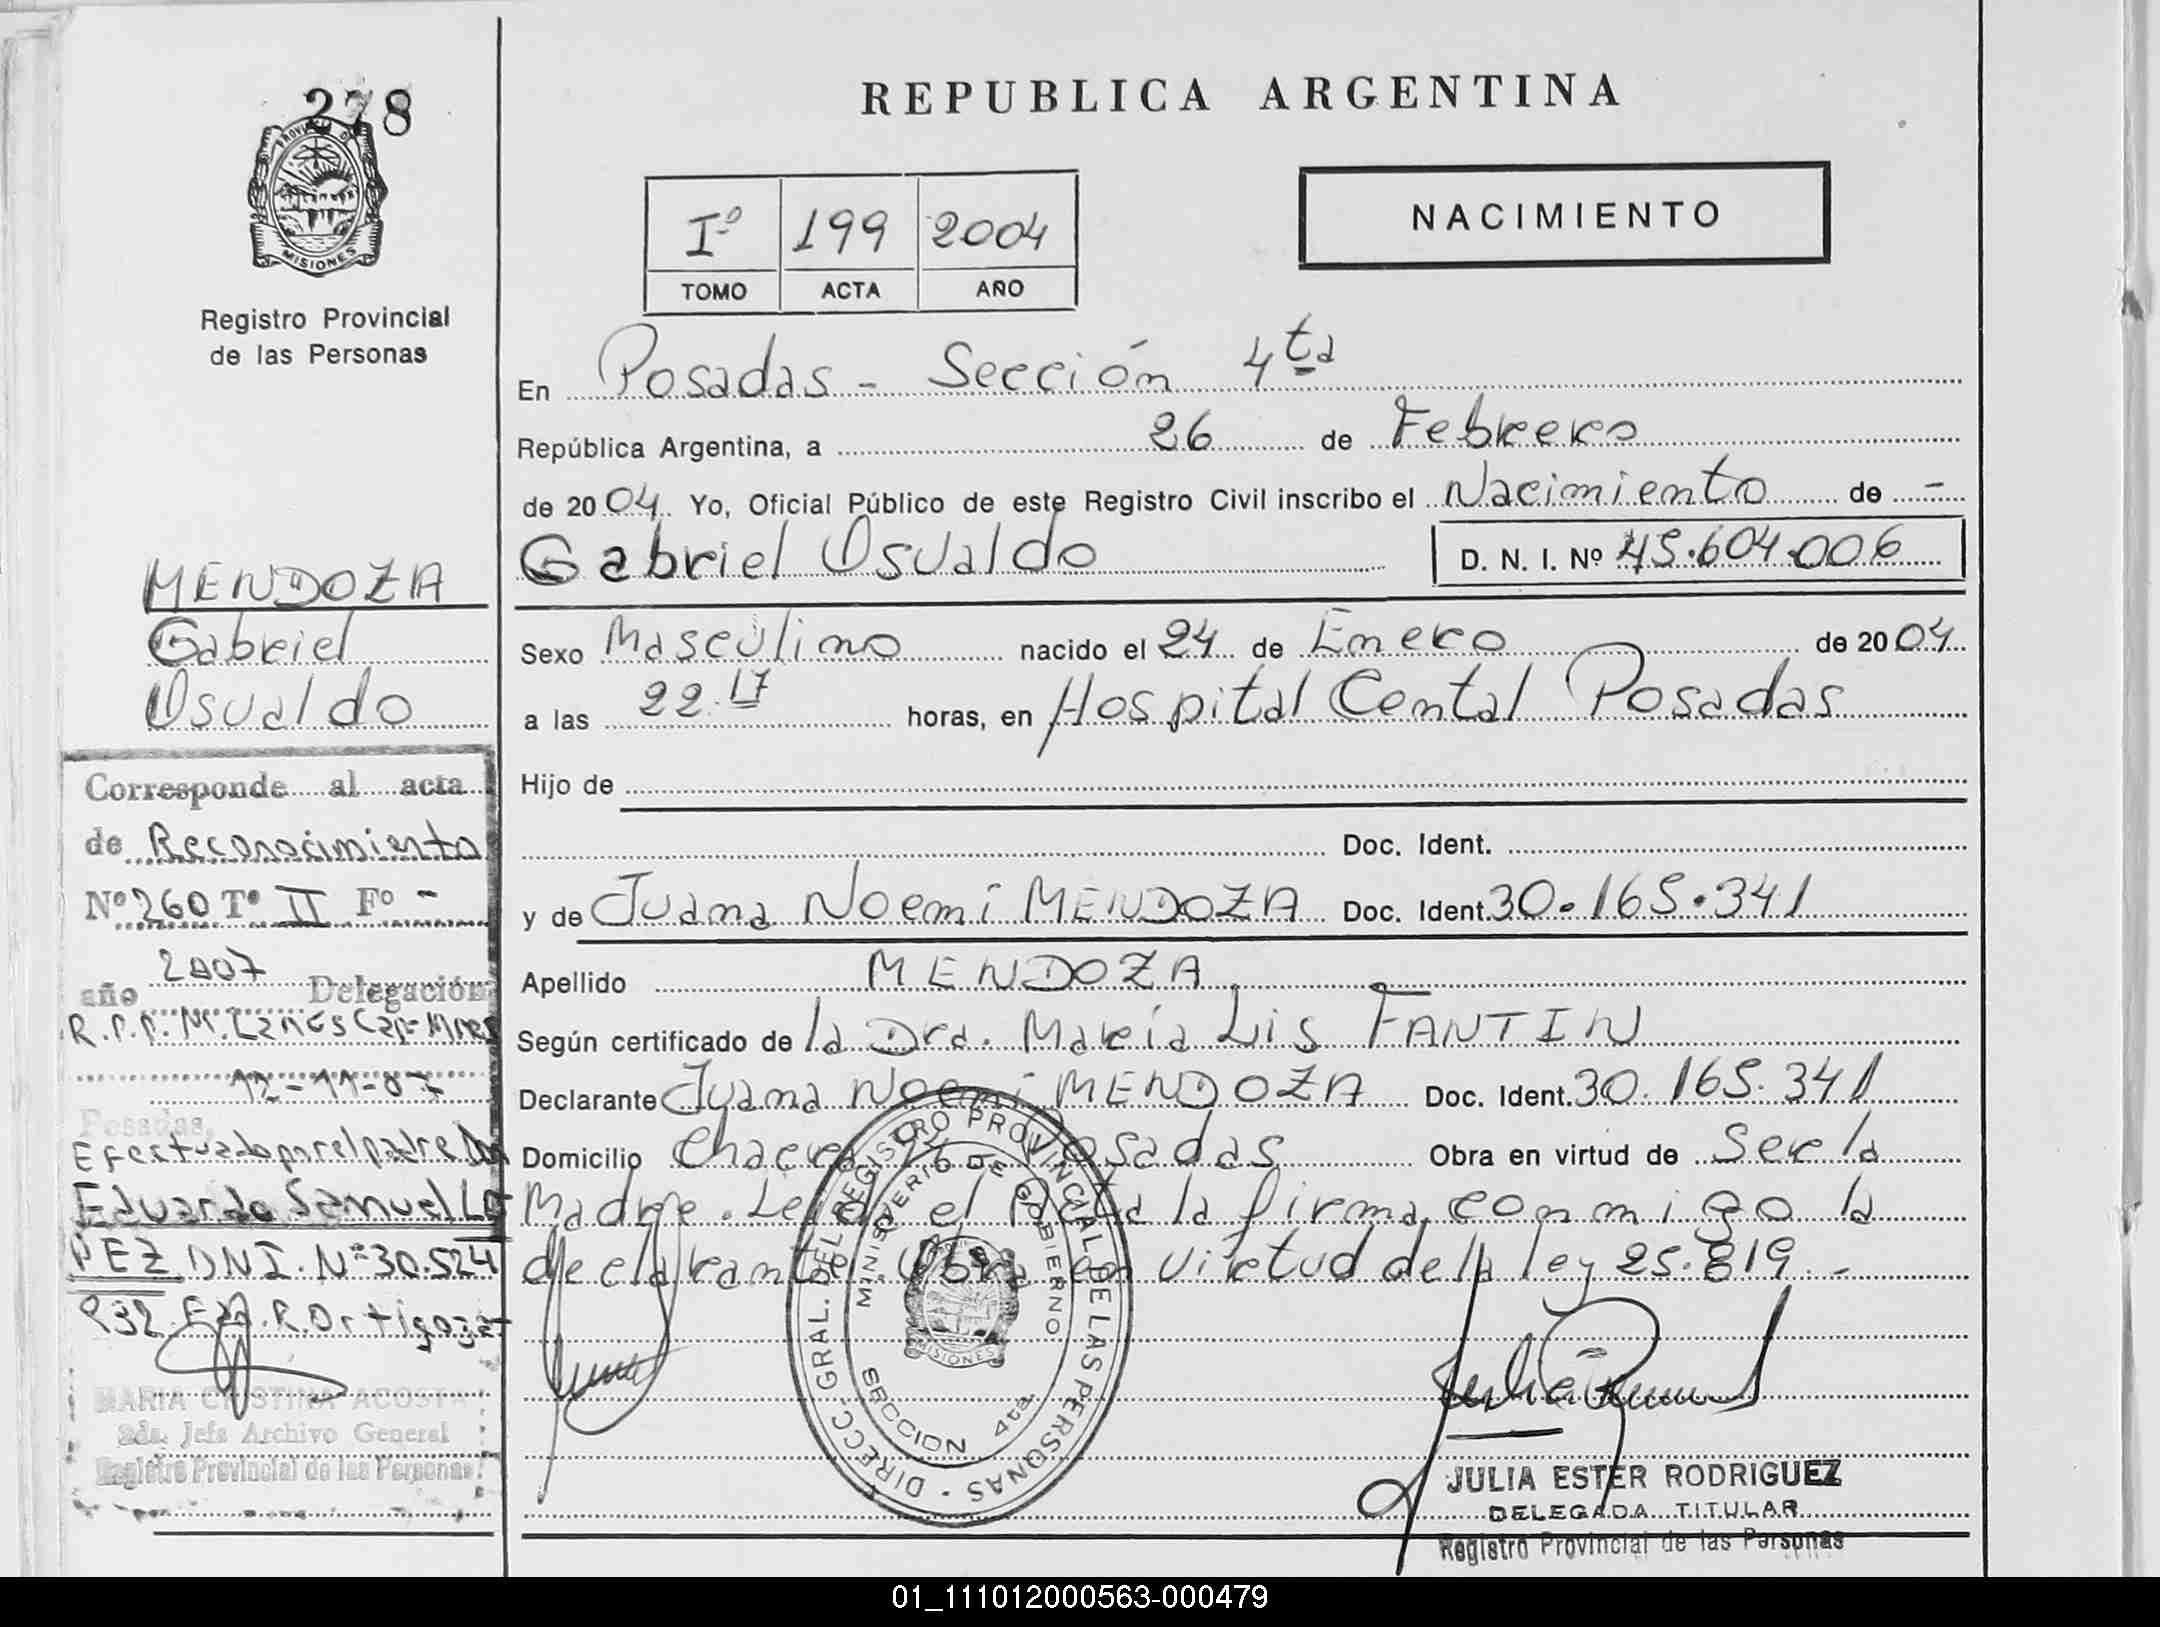 278
PROVINCIA DE
MISIONES
Registro Provincial
de las Personas
MENDOZA
Gabriel
Osvaldo
Corresponde al acta
de Reconocimiento
Nº 260 Tº II Fº -
año 2007 Delegación
12-11-07
Posadas,
Efectuado por el padre Dn
Eduardo Samuel LO
PEZ DNI. Nº 30.524
932.
MARIA CRISTINA ACOSTA
2da. Jefa Archivo General
Registro Provincial de las Personas
REPUBLICA ARGENTINA
Iº 199 2004
TOMO ACTA AÑO
NACIMIENTO
En Posadas - Sección 4ta
República Argentina, a 26 de Febrero
de 2004. Yo, Oficial Público de este Registro Civil inscribo el Nacimiento de -
Gabriel Osvaldo D. N. I. Nº 45.604.006
Sexo Masculino nacido el 24 de Enero de 2004
a las 22.17 horas, en Hospital Cental Posadas
Hijo de
Doc. Ident.
y de Juana Noemí MENDOZA Doc. Ident. 30.165.341
Apellido MENDOZA
Según certificado de la Dra. María Lis FANTIN
Declarante Juana Noemí MENDOZA Doc. Ident. 30.165.341
Domicilio Chacra Posadas Obra en virtud de Ser la
Madre. Leída el Acta la firma conmigo la
declarante. Obra en virtud de la ley 25.819.-
DIRECC. GRAL. DEL REGISTRO PROVINCIAL DE LAS PERSONAS
MINISTERIO DE GOBIERNO
MISIONES
SECCION 4ta
JULIA ESTER RODRIGUEZ
DELEGADA TITULAR
Registro Provincial de las Personas
01_111012000563-000479